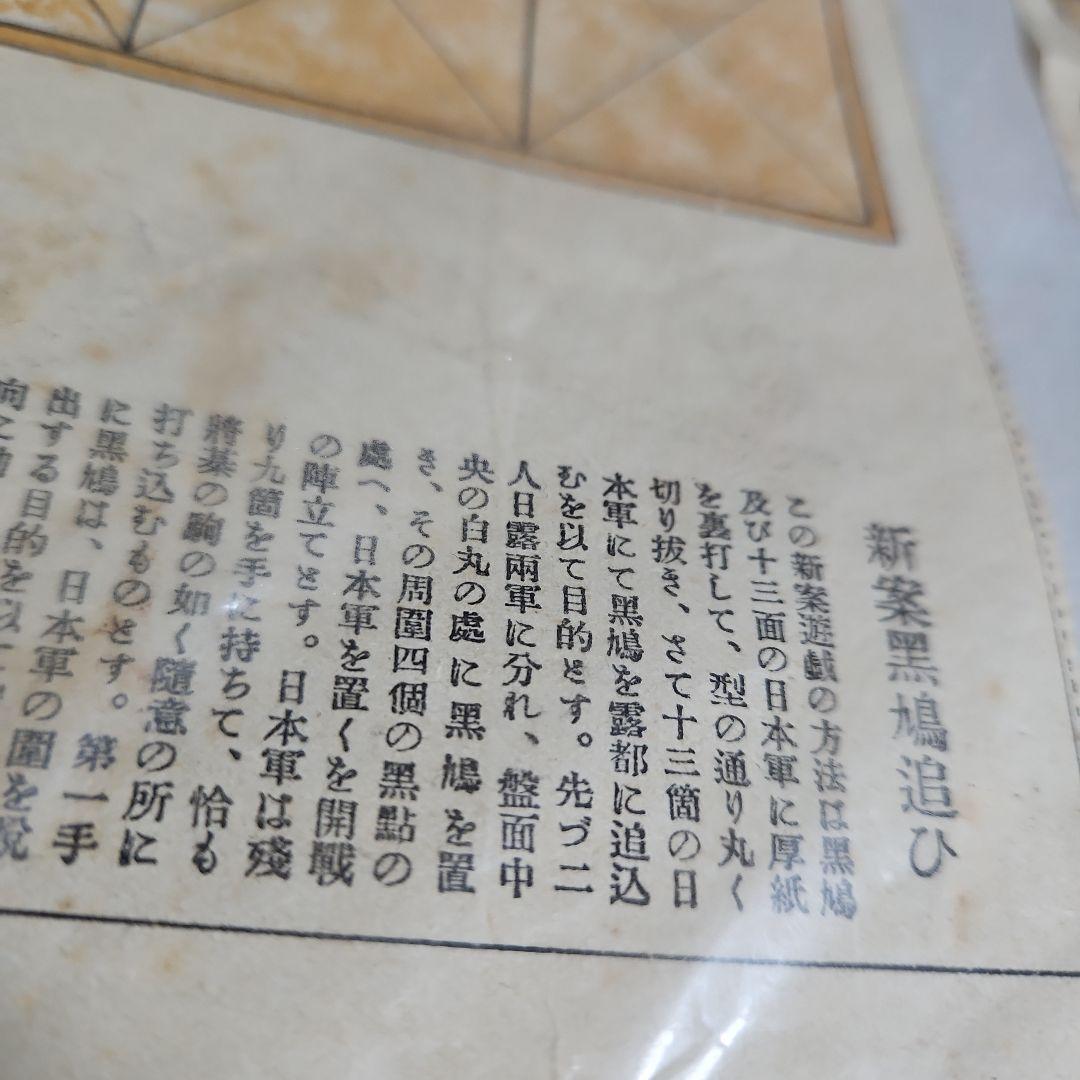 新案黑鳩追ひ
この新案遊戯の方法は黑鳩
及び十三面の日本軍に厚紙
を裏打して、型の通り丸く
切り拔き、さて十三箇の日
本軍にて黑鳩を露都に追込
むを以て目的とす。先づ二
人日露兩軍に分れ、盤面中
央の白丸の處に黑鳩を置
き、その周圍四個の黑點の
處へ、日本軍を置くを開戰
の陣立てとす。日本軍は殘
り九箇を手に持ちて、恰も
將棊の駒の如く隨意の所に
打ち込むものとす。第一手
に黑鳩は、日本軍の圍を脫
出する目的を以て
向